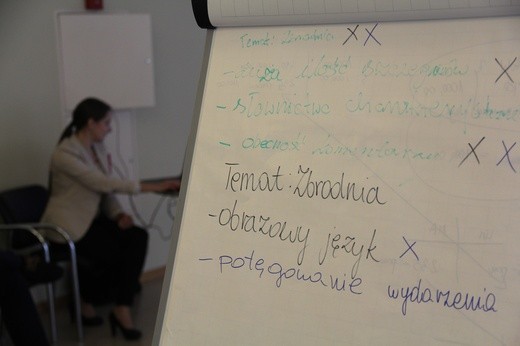 Temat: Zbrodnia XX
- duża ilość X
- słownictwo
- obecność XX
Temat: Zbrodnia
- obrazowy język X
- potęgowanie wydarzenia